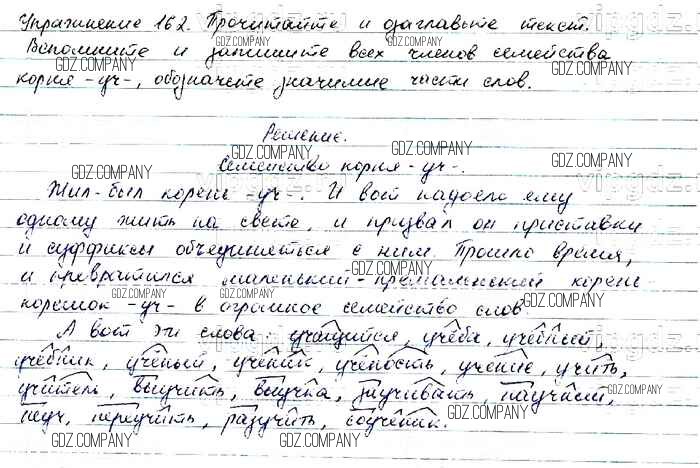 Упражнение 162. Прочитайте и озаглавьте текст.
Вспомните и запишите всех членов семейства
корня -уч-, обозначьте значимые части слов.
Решение.
Семейство корня -уч-.
Жил-был корень -уч-. И вот надоело ему
одному жить на свете, и призвал он приставки
и суффиксы объединяться с ним. Прошло время,
и превратился маленький-премаленький корень
корешок -уч- в огромное семейство слов
А вот эти слова: учащийся, учёба, учебный
учебник, учёный, ученик, учёность, учение, учить,
учитель, выучить, выучка, заучивать, научный,
неуч, переучить, разучить, соученик.
GDZ.COMPANY
vipgdz.ru